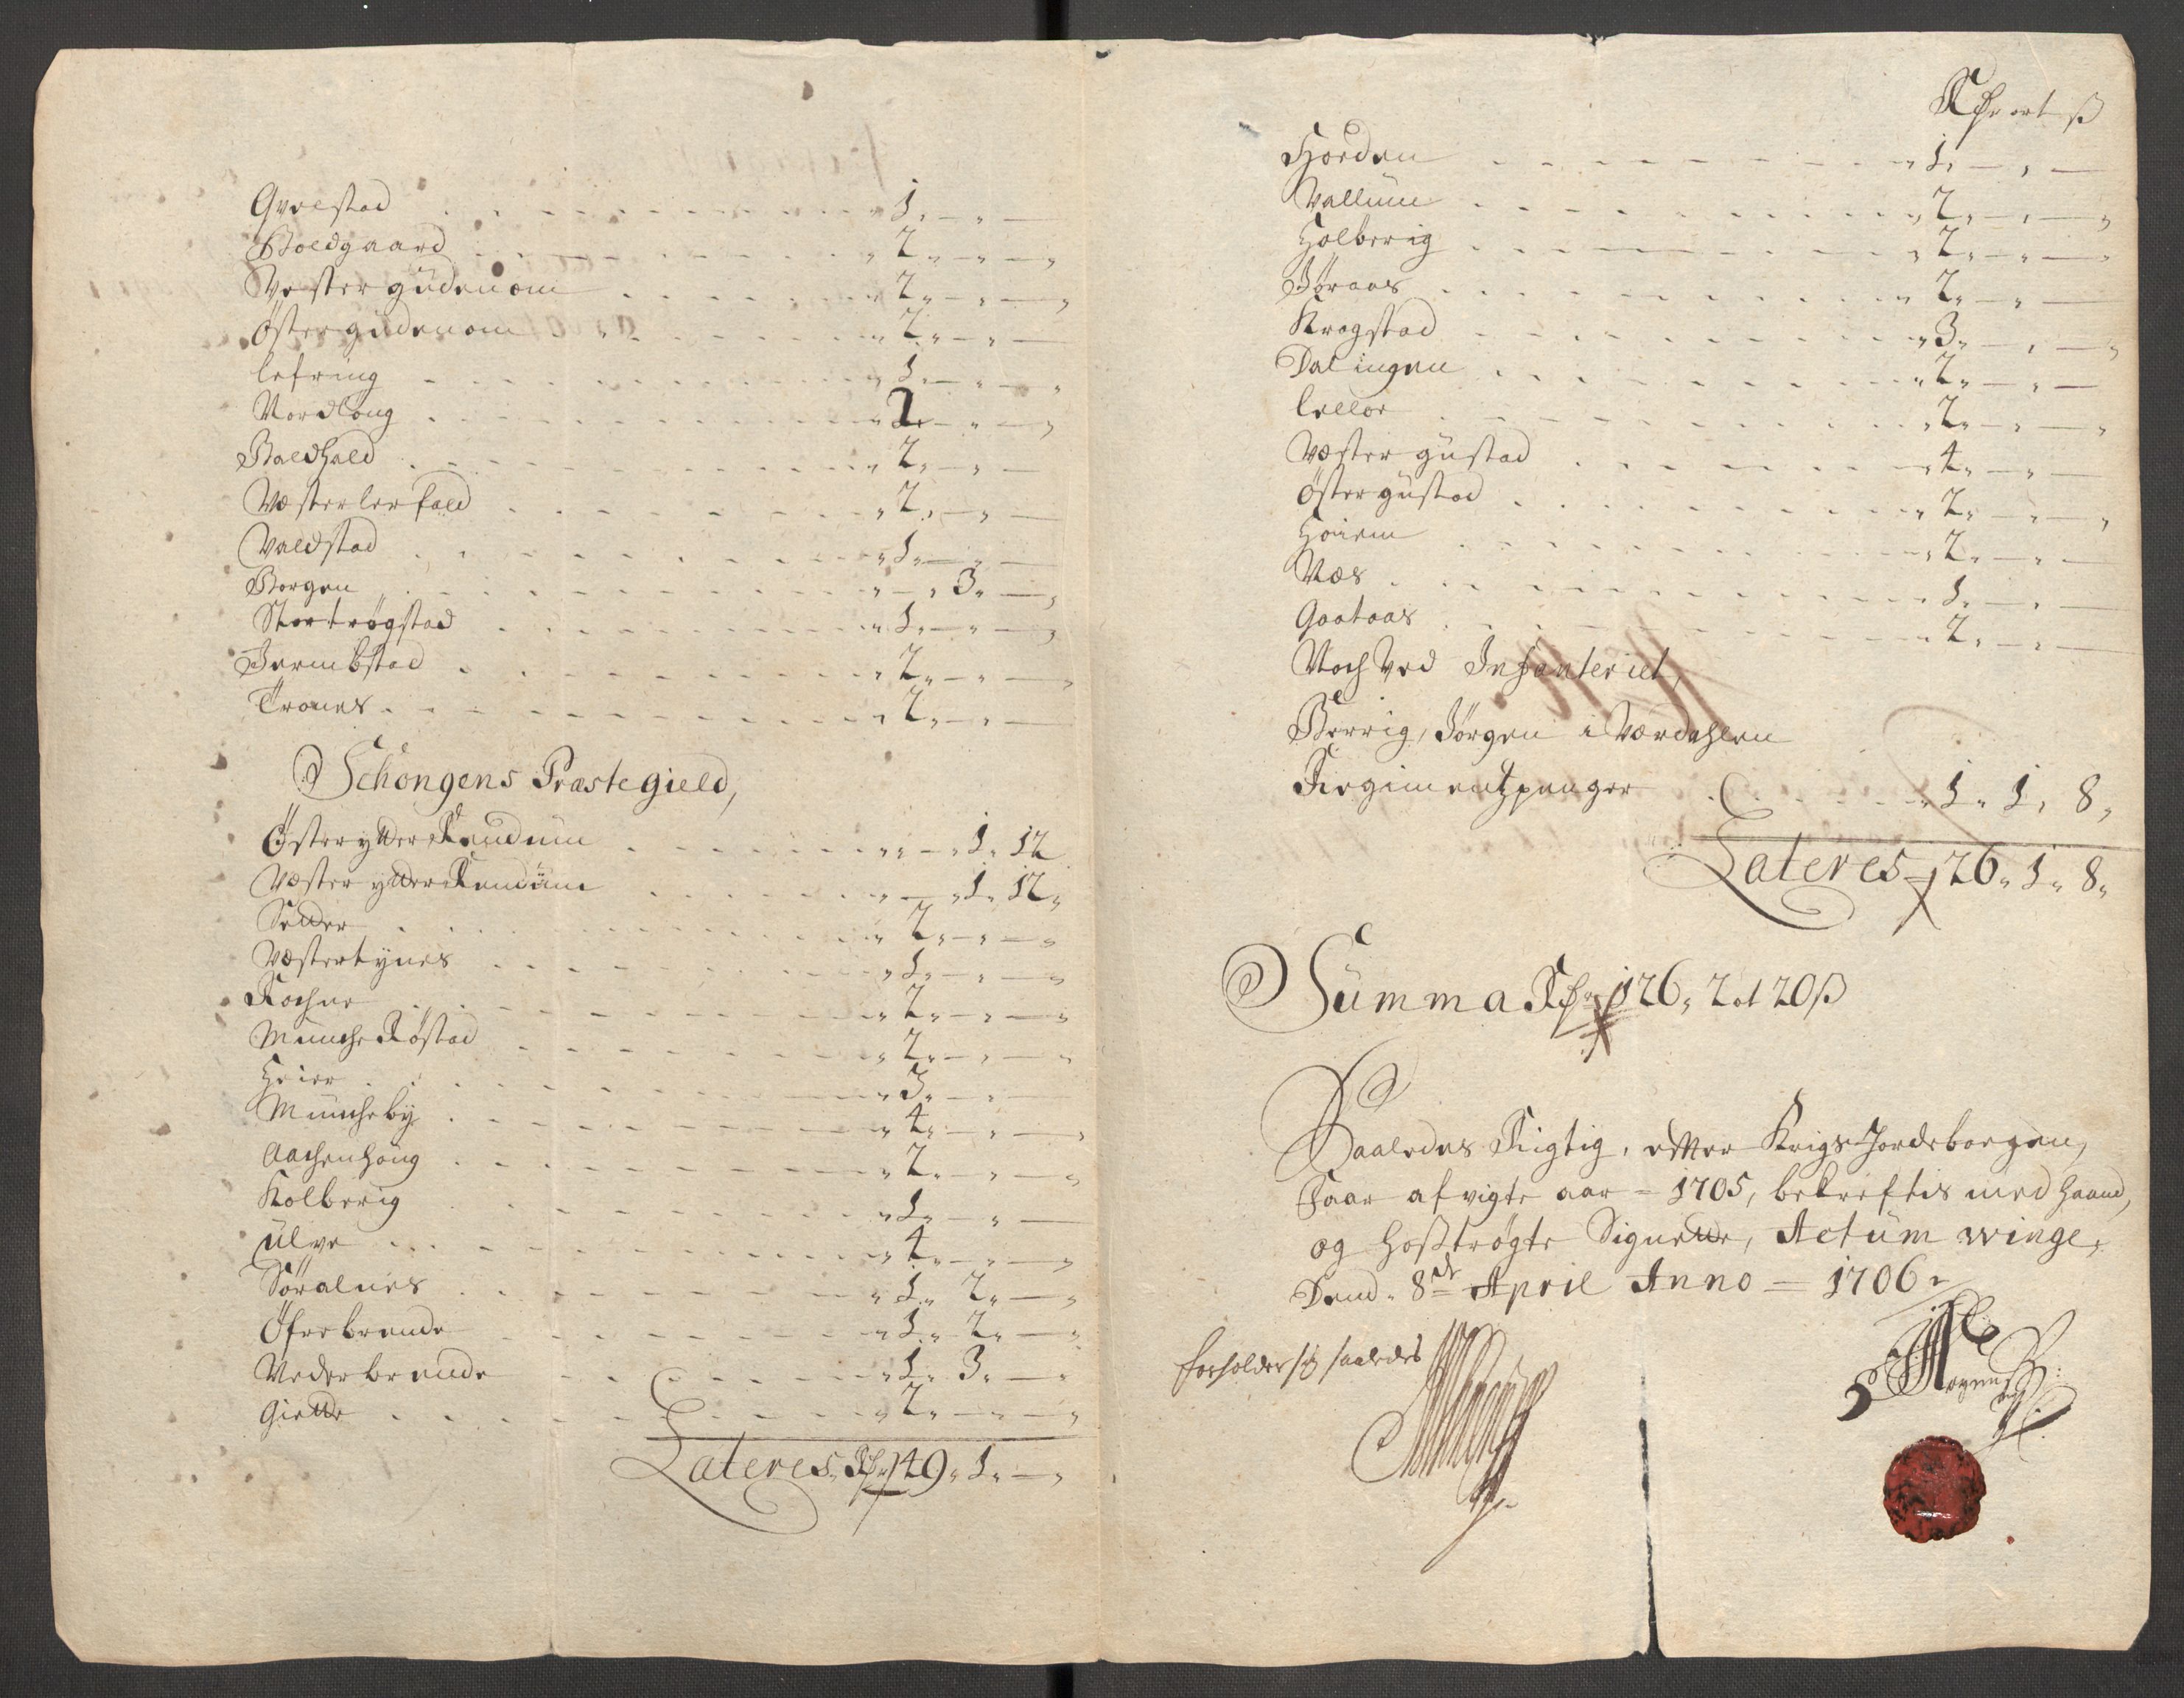 Qvelstad - 1 „ — „ —
Boldgaard - 2 „ — „ —
Vester gudenom - 2 „ — „ —
Øster gudenom - 2 „ — „ —
lefring - 1 „ — „ —
Nordloug - 2 „ — „ —
Baldhald - 2 „ — „ —
Væster lerfald - 2 „ — „ —
Valdstad - 1 „ — „ —
Borgen - „ — „ 3 „ —
Stortrøgstad - 1 „ — „ —
Jermbstad - 2 „ — „ —
Trones - 2 „ — „ —
Schongens Præstegield,
Øster ytter Rendum - „ — „ 1 „ 12
Væster ytter Rendum - „ — „ 1 „ 12 „
Setter - 2 „ — „ —
Væstertynes - 1 „ — „ —
Fochne - 2 „ — „ —
Munche Røstad - 2 „ — „ —
Heier - 3 „ — „ —
Muncheby - 4 „ — „ —
Aachenhoug - 2 „ — „ —
Kolberig - 1 „ — „ —
Ulve - 4 „ — „ —
Søralnes - 1 „ 2 „ —
Øfrebrende - 1 „ 2 „ —
Nederbrende - 1 „ 3 „ —
Giette - 2 „ — „ —
Lateres Rdr 49 „ 1 „ —
Rdr ort ß
Horden - 1 „ — „ —
Vallum - 2 „ — „ —
Holberig - 2 „ — „ —
Jøraas - 2 „ — „ —
Kragstad - 3 „ — „ —
Dalingen - 2 „ — „ —
Lello - 2 „ — „ —
Væster gustad - 4 „ — „ —
Øster gustad - 2 „ — „ —
Hoiem - 2 „ — „ —
Næs - 1 „ — „ —
Gaataas - 2 „ — „ —
Noch Ved Infanteriet,
Berrig, Jørgen i Værdahlen
Regimentzpenger - 1 „ 1 „ 8 „
Lateres 26 „ 1 „ 8 „
Summa Rdr 126 „ 2 ort 20 ß
Saaledes Rigtig, effter Krigs Jordebogen,
Faar afvigte aar = 1705, bekreftis med haand,
og hoßtrøgte Signette, Actum Winge,
Dend. 8de April Anno = 1706
forholder sig saaledes